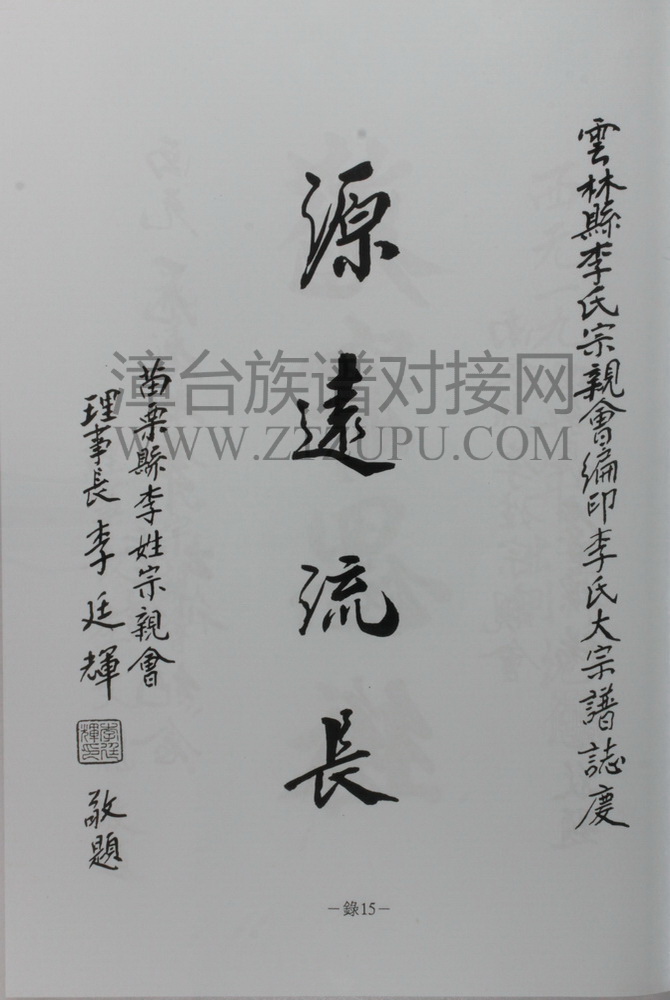 雲林縣李氏宗親會編印李氏大宗譜誌慶
源遠流長
苗栗縣李姓宗親會
理事長李廷輝
李廷輝印
敬題
漳台族谱对接网
WWW.ZTZUPU.COM
－錄15－